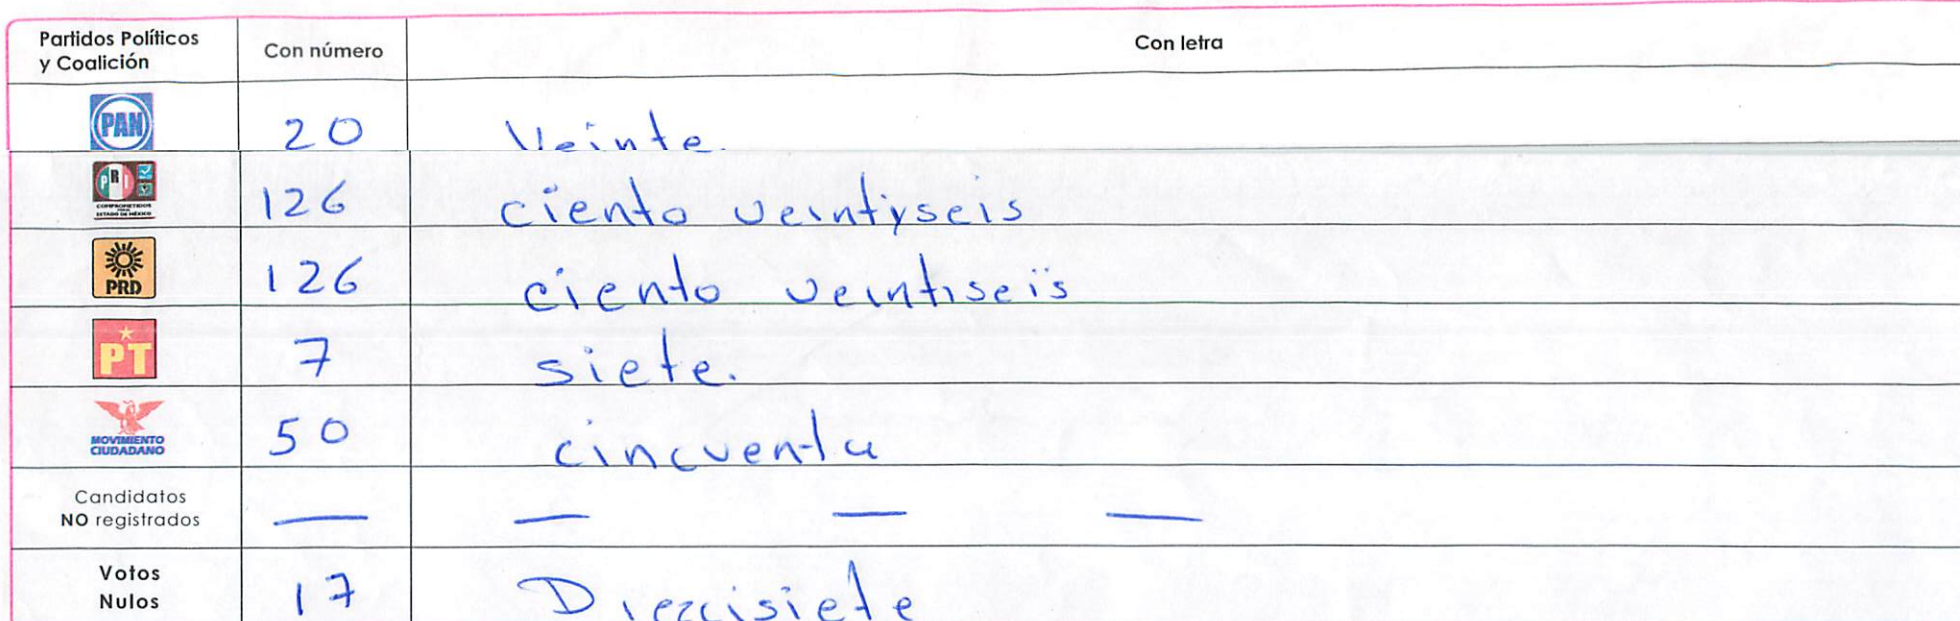 Partidos Políticos y Coalición Con número Con letra
PAN 20 Veinte.
PRI COMPROMETIDOS ESTADO DE MÉXICO 126 ciento veintyseis
PRD 126 ciento veintiseïs
PT 7 siete.
MOVIMIENTO CIUDADANO 50 cincuenta
Candidatos NO registrados — — — —
Votos Nulos 17 Diezcisiete